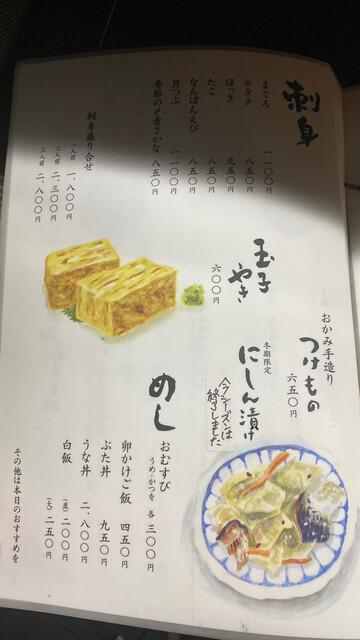 刺身
まぐろ 一、一〇〇円
ホタテ 八五〇円
ほっき 九五〇円
たこ 八五〇円
なんばんえび 八五〇円
貝つぶ 一、一〇〇円
季節の〆青さかな 八五〇円
刺身盛り合せ
一人前 一、八〇〇円
二人前 二、三〇〇円
三人前 二、八〇〇円
玉子やき
六〇〇円
おかみ手造り
つけもの
六五〇円
冬期限定
にしん漬け
今シーズンは
終了しました
めし
おむすび
うめ・かつを 各三〇〇円
卵かけご飯 四五〇円
ぶた丼 九五〇円
うな丼 二、八〇〇円
白飯 (並)二〇〇円
(大)二五〇円
その他は本日のおすすめを